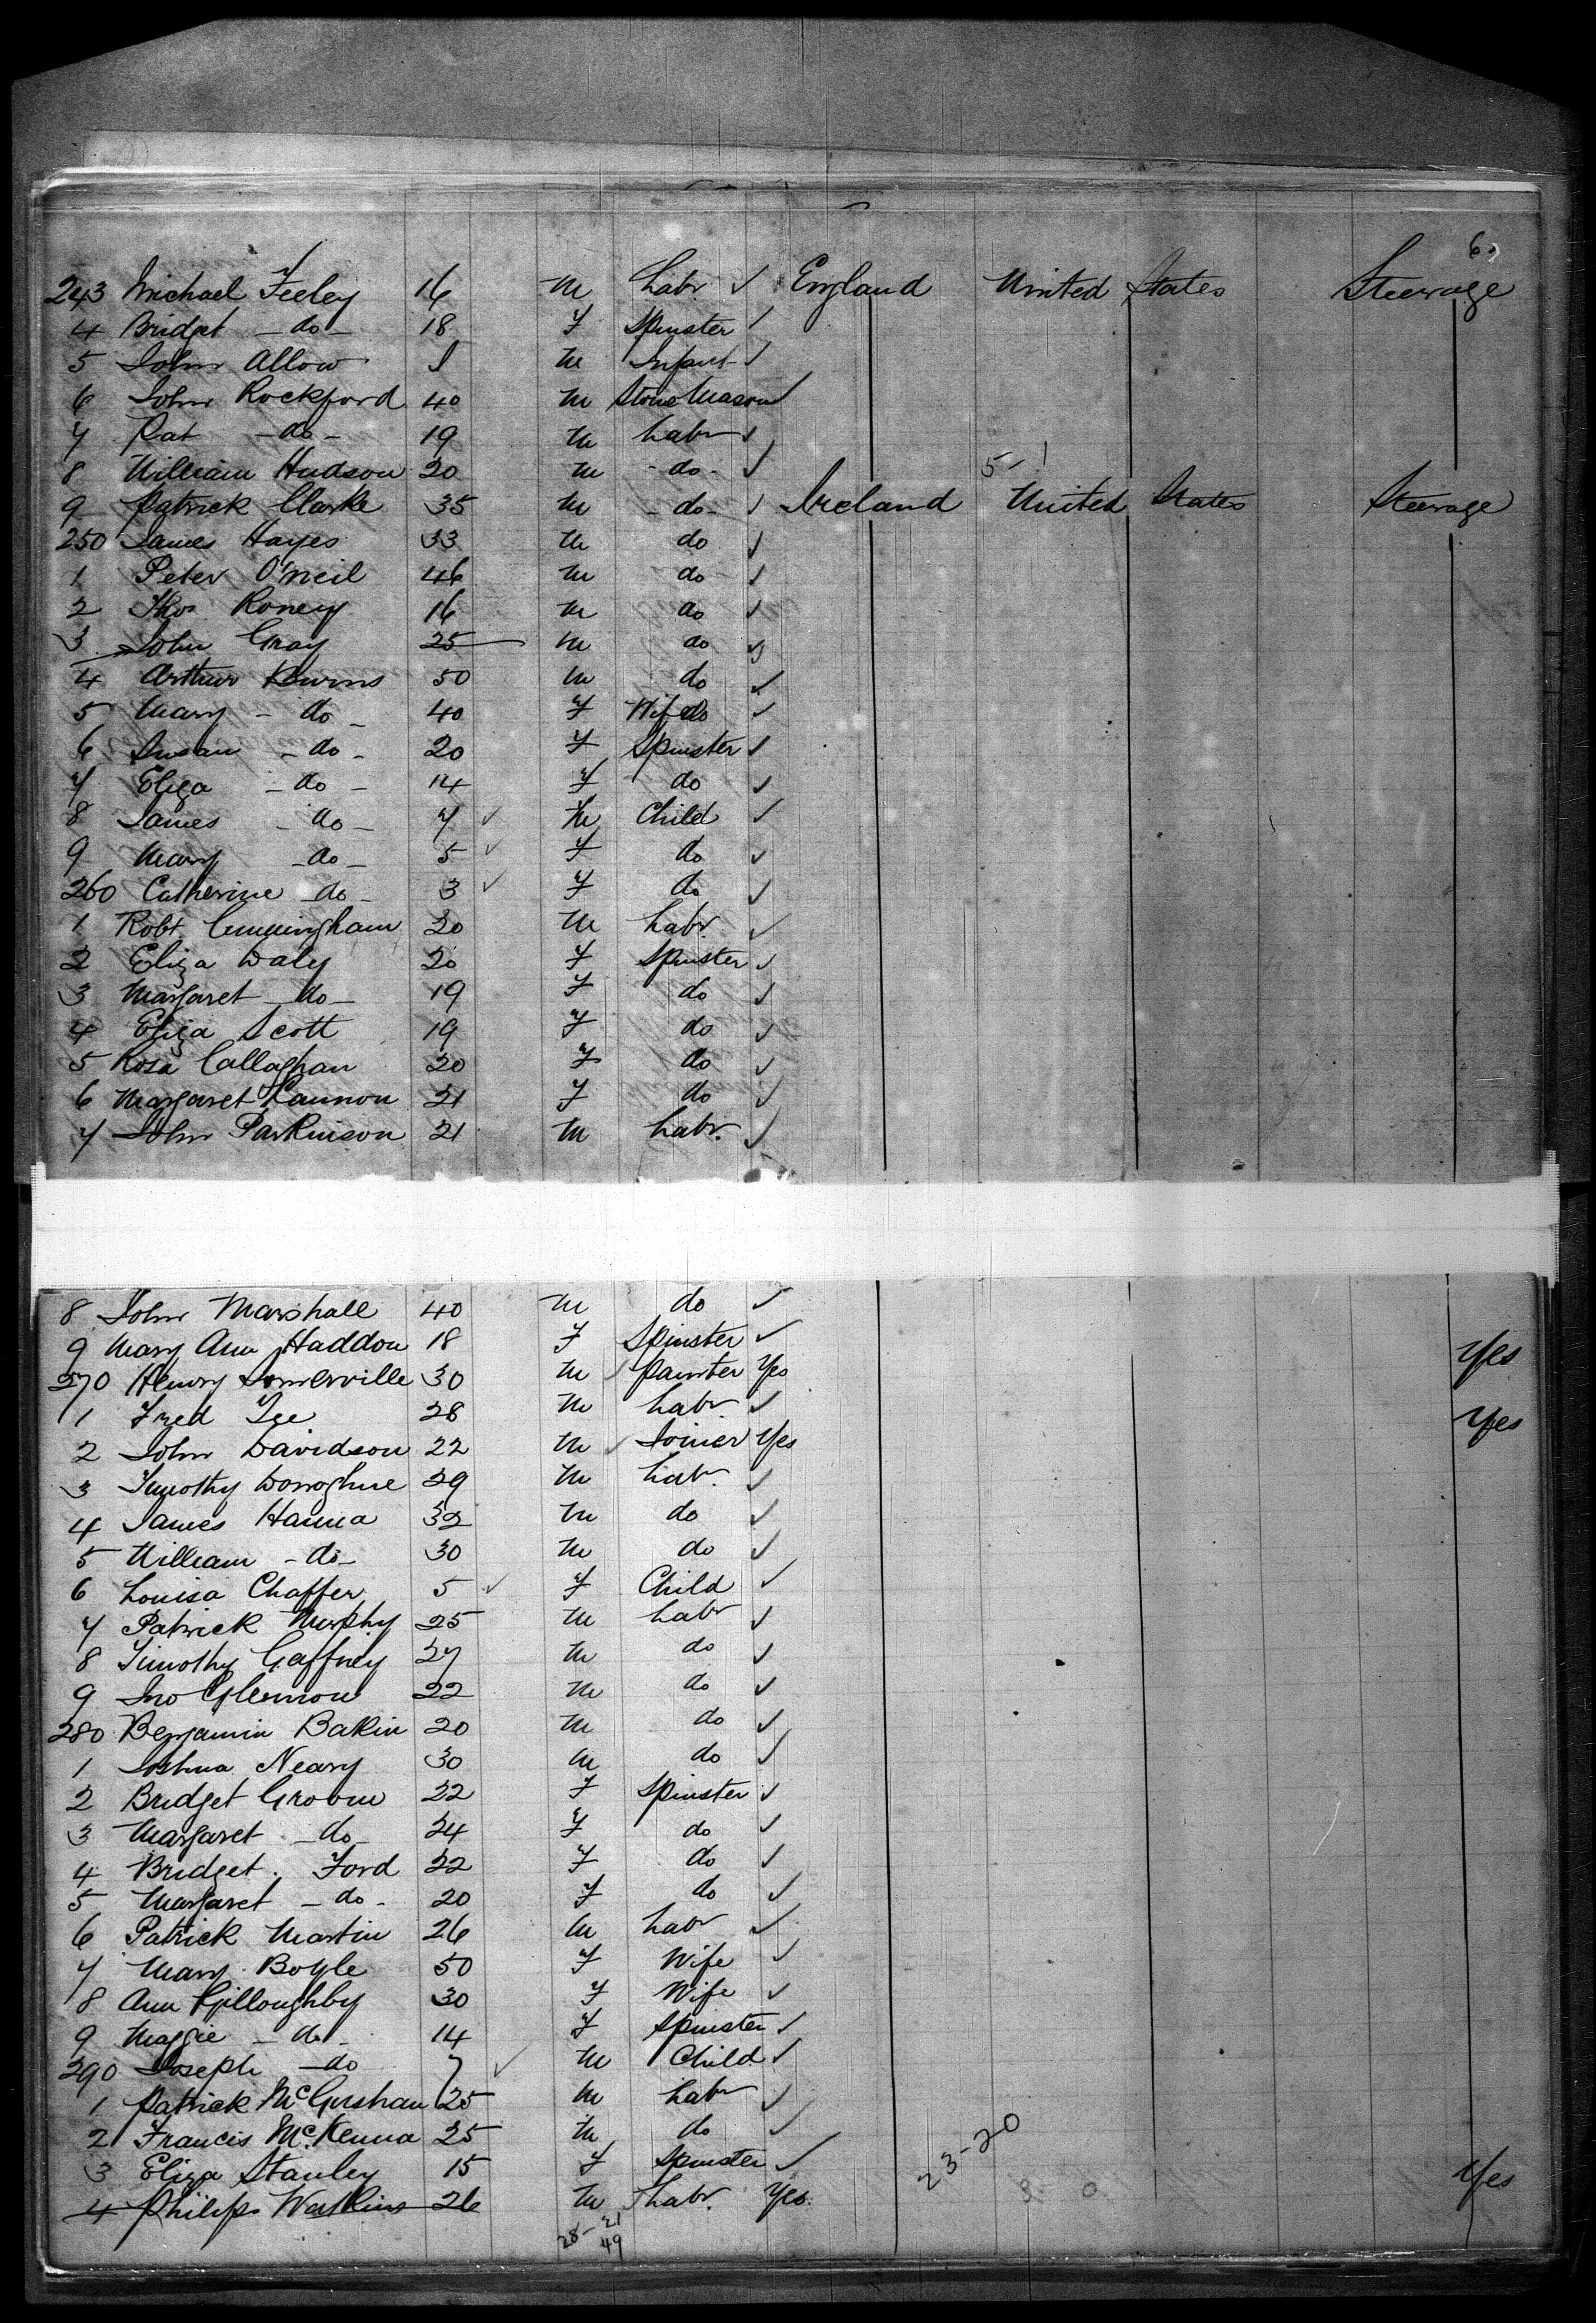 6
243 Michael Feeley 16 M Labr ✓ England United States Steerage
4 Bridget - do - 18 F Spinster ✓
5 John Allow 1 M Infant ✓
6 John Rockford 40 M Stone Mason ✓
7 Pat - do - 19 M Labr ✓
8 William Hudson 20 M - do - ✓ 5-1
9 Patrick Clarke 35 M - do - ✓ Ireland United States Steerage
250 James Hayes 33 M do ✓
1 Peter O'Neil 46 M do ✓
2 Thos Roney 16 M do ✓
3 John Gray 25 M do ✓
4 Arthur Burns 50 M do ✓
5 Mary - do - 40 F Wife do ✓
6 Susan - do - 20 F Spinster ✓
7 Eliza - do - 14 F do ✓
8 James - do - 7 ✓ M Child ✓
9 Mary - do - 5 ✓ F do ✓
260 Catherine - do - 3 ✓ F do ✓
1 Robt Cunningham 20 M Labr ✓
2 Eliza Daly 20 F Spinster ✓
3 Margaret - do - 19 F do ✓
4 Eliza Scott 19 F do ✓
5 Rosa Callaghan 20 F do ✓
6 Margaret Cannon 21 F do ✓
7 John Parkinson 21 M Labr. ✓
8 John Marshall 40 M do ✓
9 Mary Ann Haddon 18 F Spinster ✓
270 Henry Somerville 30 M Painter Yes Yes
1 Fred Lee 28 M Labr ✓
2 John Davidson 22 M Joiner Yes Yes
3 Timothy Donoghue 29 M Labr. ✓
4 James Hanna 32 M do ✓
5 William - do - 30 M do ✓
6 Louisa Chaffer 5 ✓ F Child ✓
7 Patrick Murphy 25 M Labr ✓
8 Timothy Gaffney 27 M do ✓
9 Jno Glennon 22 M do ✓
280 Benjamin Bakin 20 M do ✓
1 Joshua Neary 30 M do ✓
2 Bridget Groom 22 F Spinster ✓
3 Margaret - do - 24 F do ✓
4 Bridget Ford 22 F do ✓
5 Margaret - do - 20 F do ✓
6 Patrick Martin 26 M Labr ✓
7 Mary Boyle 50 F Wife ✓
8 Ann Gilloughby 30 F Wife ✓
9 Maggie - do - 14 F Spinster ✓
290 Joseph - do 7 ✓ M Child ✓
1 Patrick McGushan 25 M Labr ✓
2 Francis McKenna 25 M do ✓
3 Eliza Stanley 15 F Spinster ✓ 23-20
4 Philip Watkins 26 M Labr. Yes. Yes
28-21
49